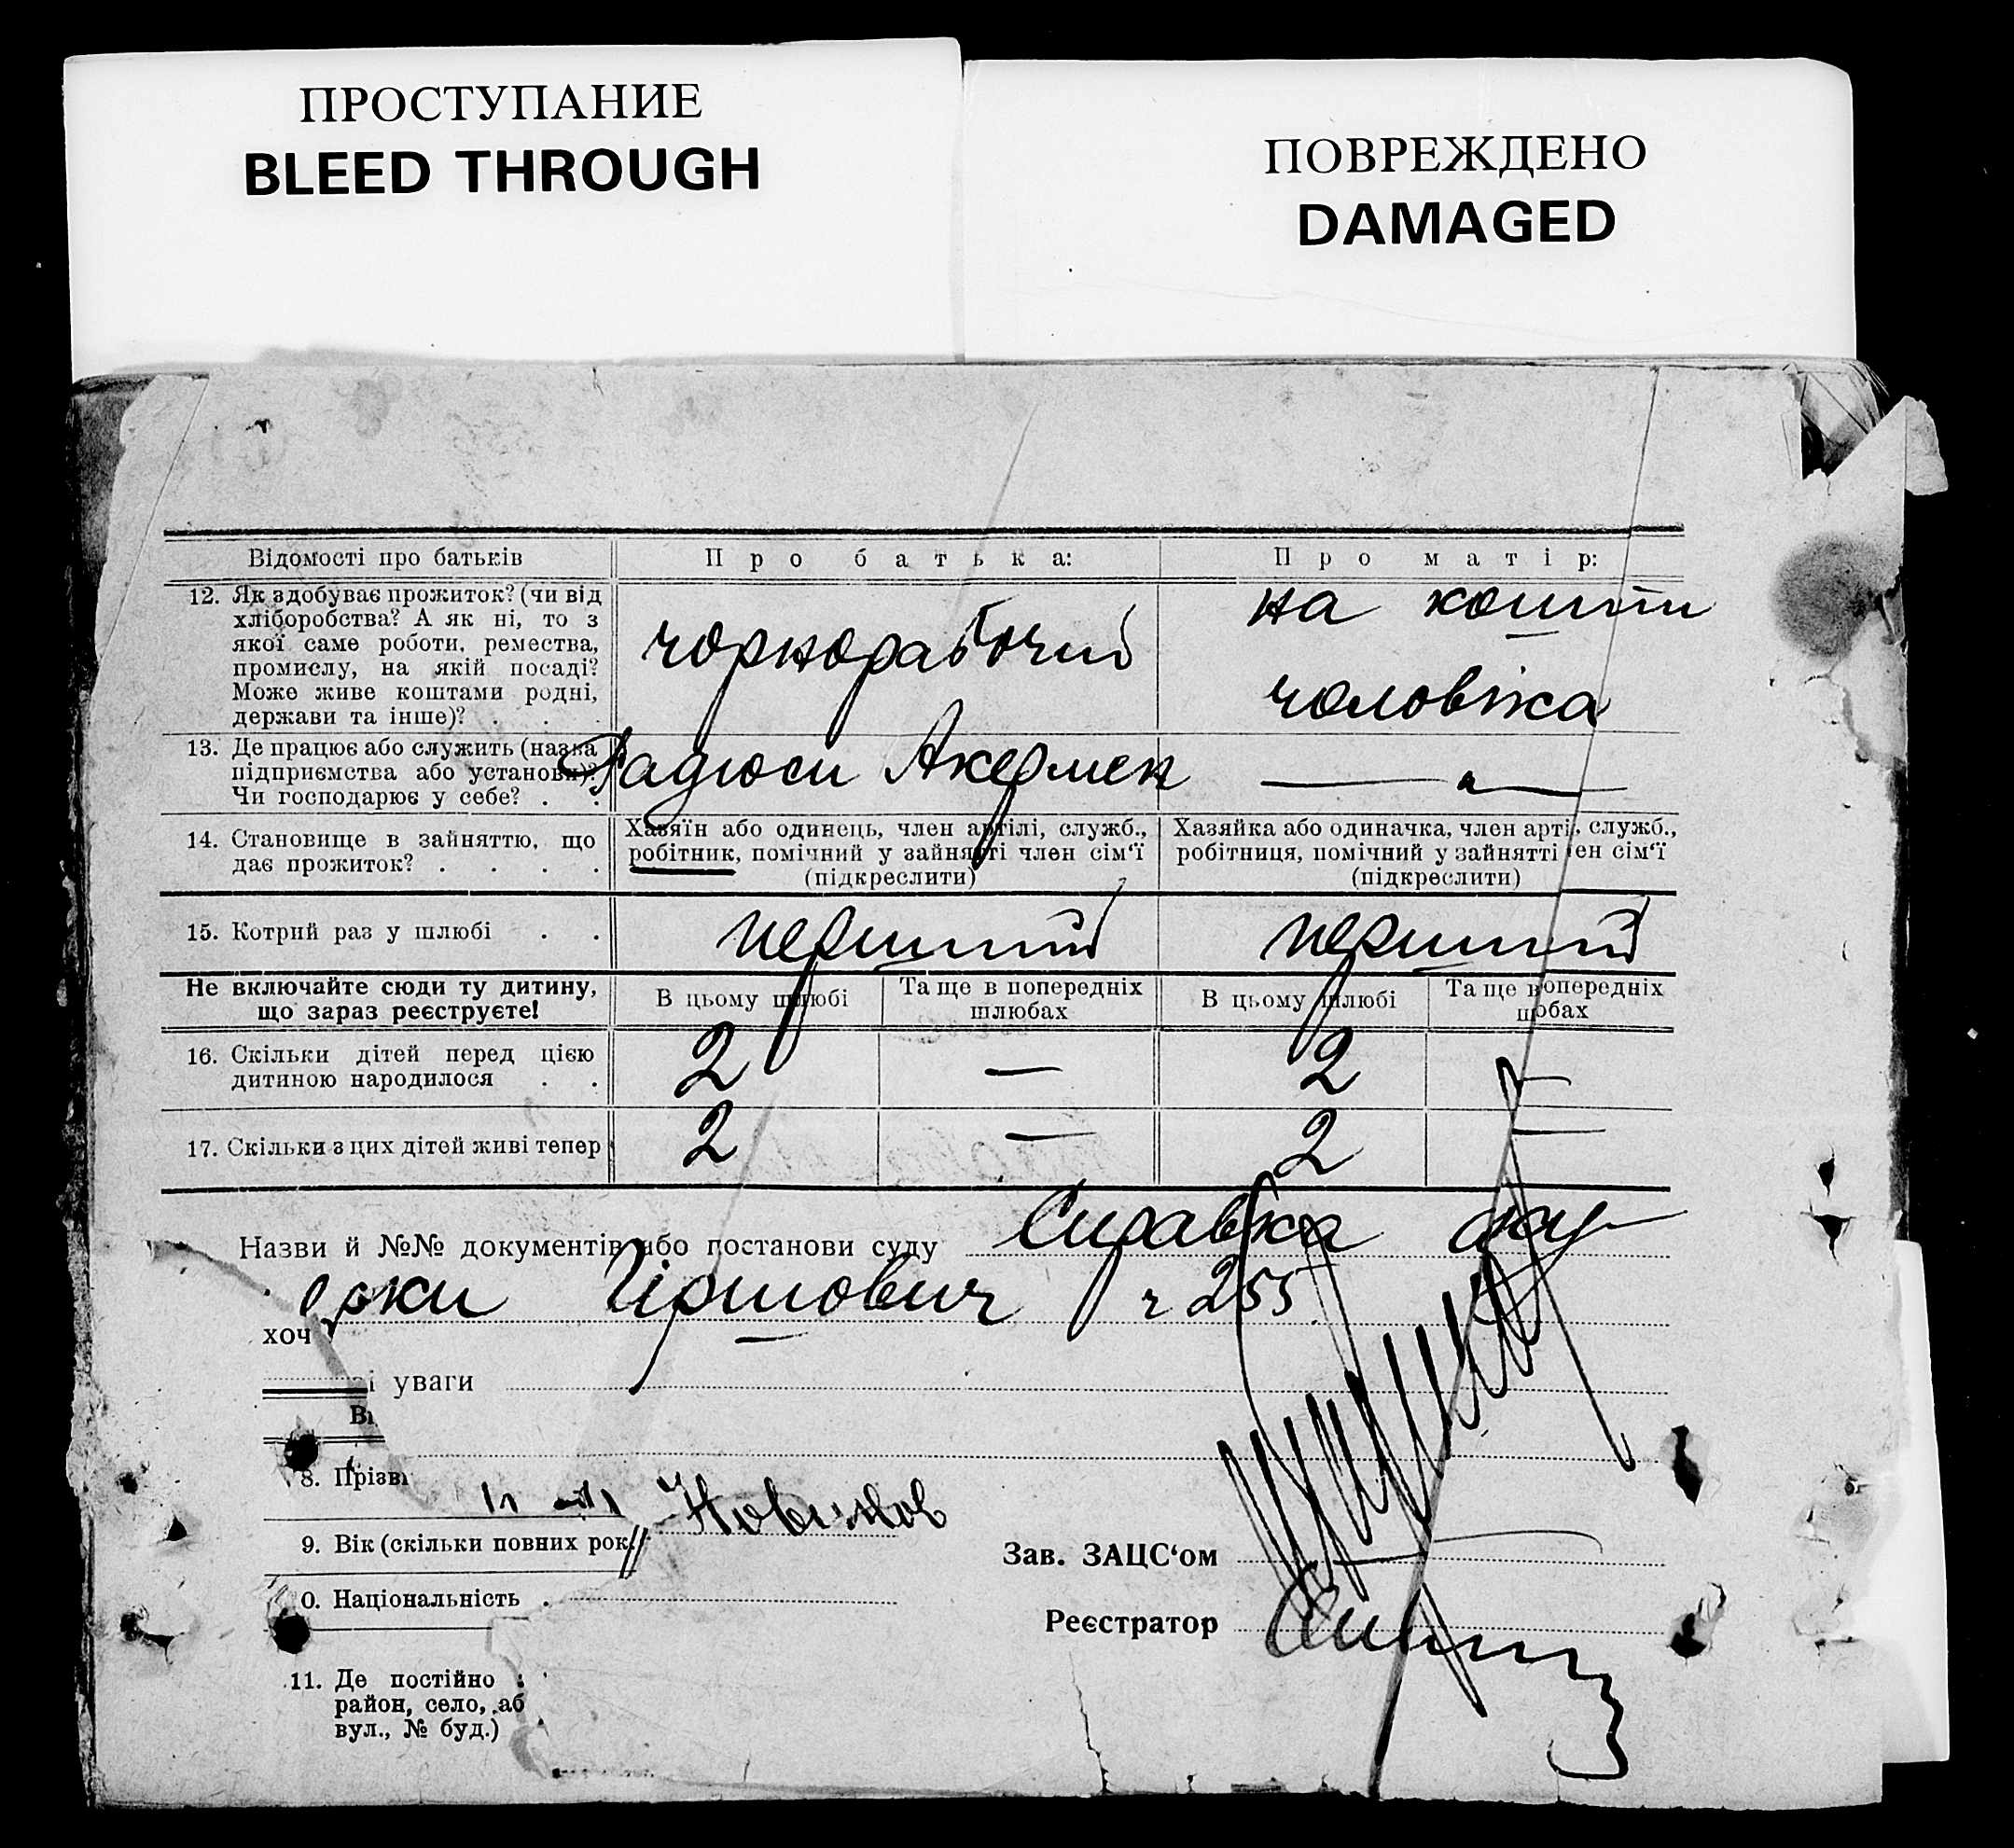 ПРОСТУПАНИЕ
BLEED THROUGH
ПОВРЕЖДЕНО
DAMAGED
Відомості про батьків
Про батька:
Про матір:
12. Як здобуває прожиток? (чи від
хліборобства? А як ні, то з
якої саме роботи, ремества,
промислу, на якій посаді?
Може живе коштами родні,
держави та інше)? . . .
чорнорабочий
на кошти
чоловіка
13. Де працює або служить (назва
підприємства або установи)?
Чи господарює у себе? . .
Акермен
— " —
14. Становище в зайняттю, що
дає прожиток? . . . .
Хазяїн або одинець, член артілі, служб.,
робітник, помічний у зайнятті член сім'ї
(підкреслити)
Хазяйка або одиначка, член арті, служб.,
робітниця, помічний у зайнятті ен сім'ї
(підкреслити)
15. Котрий раз у шлюбі . .
перший
перший
Не включайте сюди ту дитину,
що зараз реєструєте!
В цьому шлюбі
Та ще в попередніх
шлюбах
В цьому шлюбі
Та ще в опередніх
шобах
16. Скільки дітей перед цією
дитиною народилося . .
2
—
2
—
17. Скільки з цих дітей живі тепер
2
—
2
—
Назви й №№ документів або постанови суду Справка
ч 255
хоч
і уваги
Ві
8. Прізві
Новиков
9. Вік (скільки повних рок
0. Національність .
11. Де постійно
район, село, аб
вул., № буд.)
Зав. ЗАЦС'ом
Реєстратор